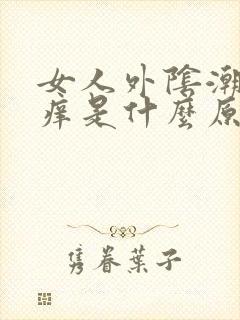 女人外陰潮
痒是什麼原
隽眷葉子